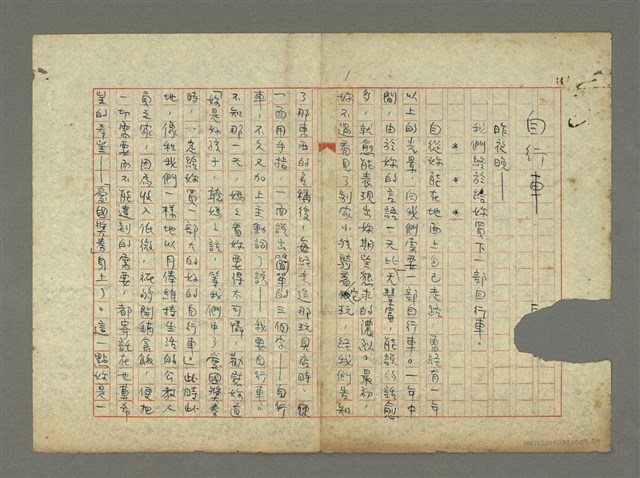 自行車
昨夜晚——
我們終於給妳買下一部自行車。
＊　＊　＊
自從妳能在地面上自己走路，曾經有一年
以上的光景，向我們需要一部自行車。一年中
間，由於妳的言語一天比一天豐富，能說的話愈
多，就愈能表現出妳期望懇求的濃烈。最初，
妳不過看見了別家小孩騎着它玩，經我們告知
了那東西的名稱後，每經過那玩具店時，便
一面用手指，一面說出簡單的三個字——自行
車，不久又加上主動詞了說——我要自行車。
不知那一天，媽媽看妳要得太可憐，勸慰妳道
「妳是好孩子，聽媽媽說，等我們中了愛國獎券
時，一定給妳買一部大的好的自行車」此時此
地，像和我們一樣地以月俸維持生活的公教人
員之家，因為收入低微，很多開銷食飯，便把
一切需要而不能達到的需要，都寄託在也算希
望的希望——愛國獎券身上了。這一點妳是一
1